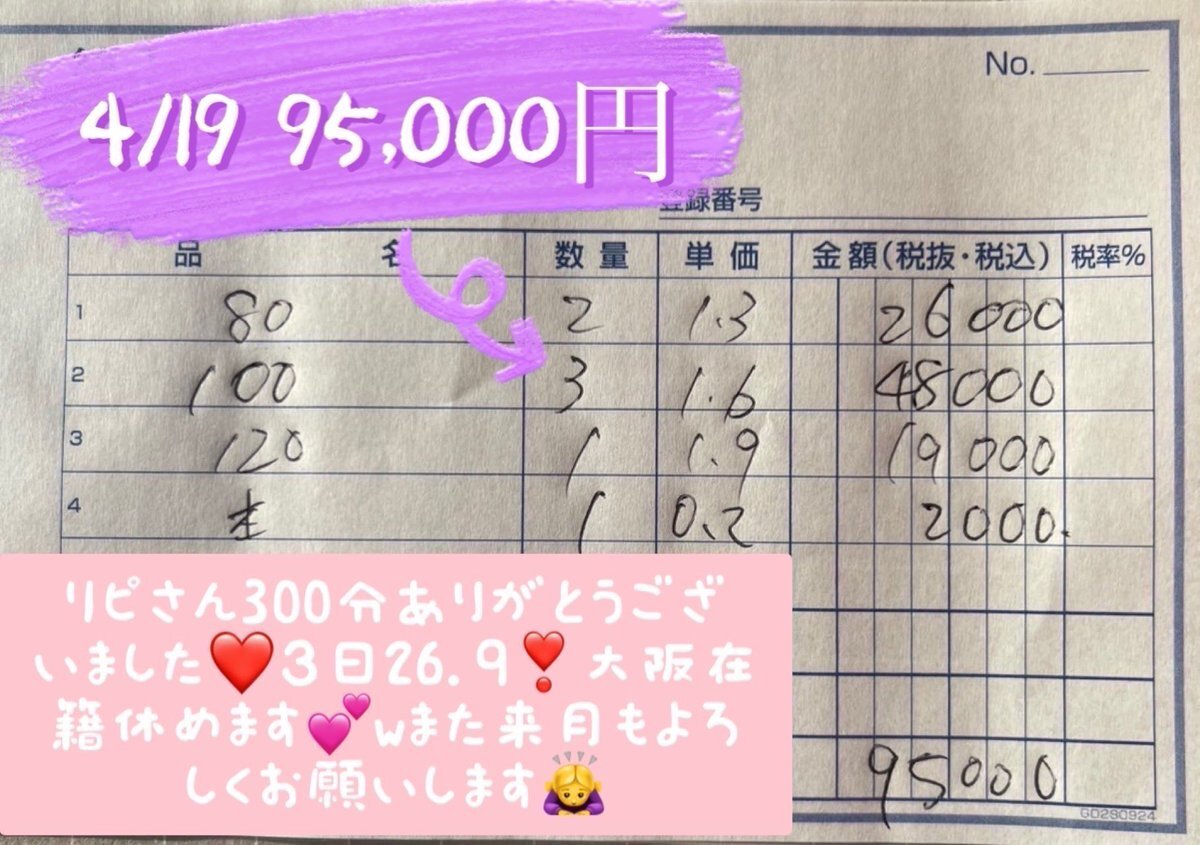 4/19 95,000円
No.
登録番号
品 名 数量 単価 金額(税抜・税込) 税率%
1 80 2 1.3 26000
2 100 3 1.6 48000
3 120 1 1.9 19000
4 本 1 0.2 2000.
リピさん300分ありがとうござ
いました❤️3日26.9❣️大阪在
籍休めます💕wまた来月もよろ
しくお願いします🙇‍♀️
95000
GD290924